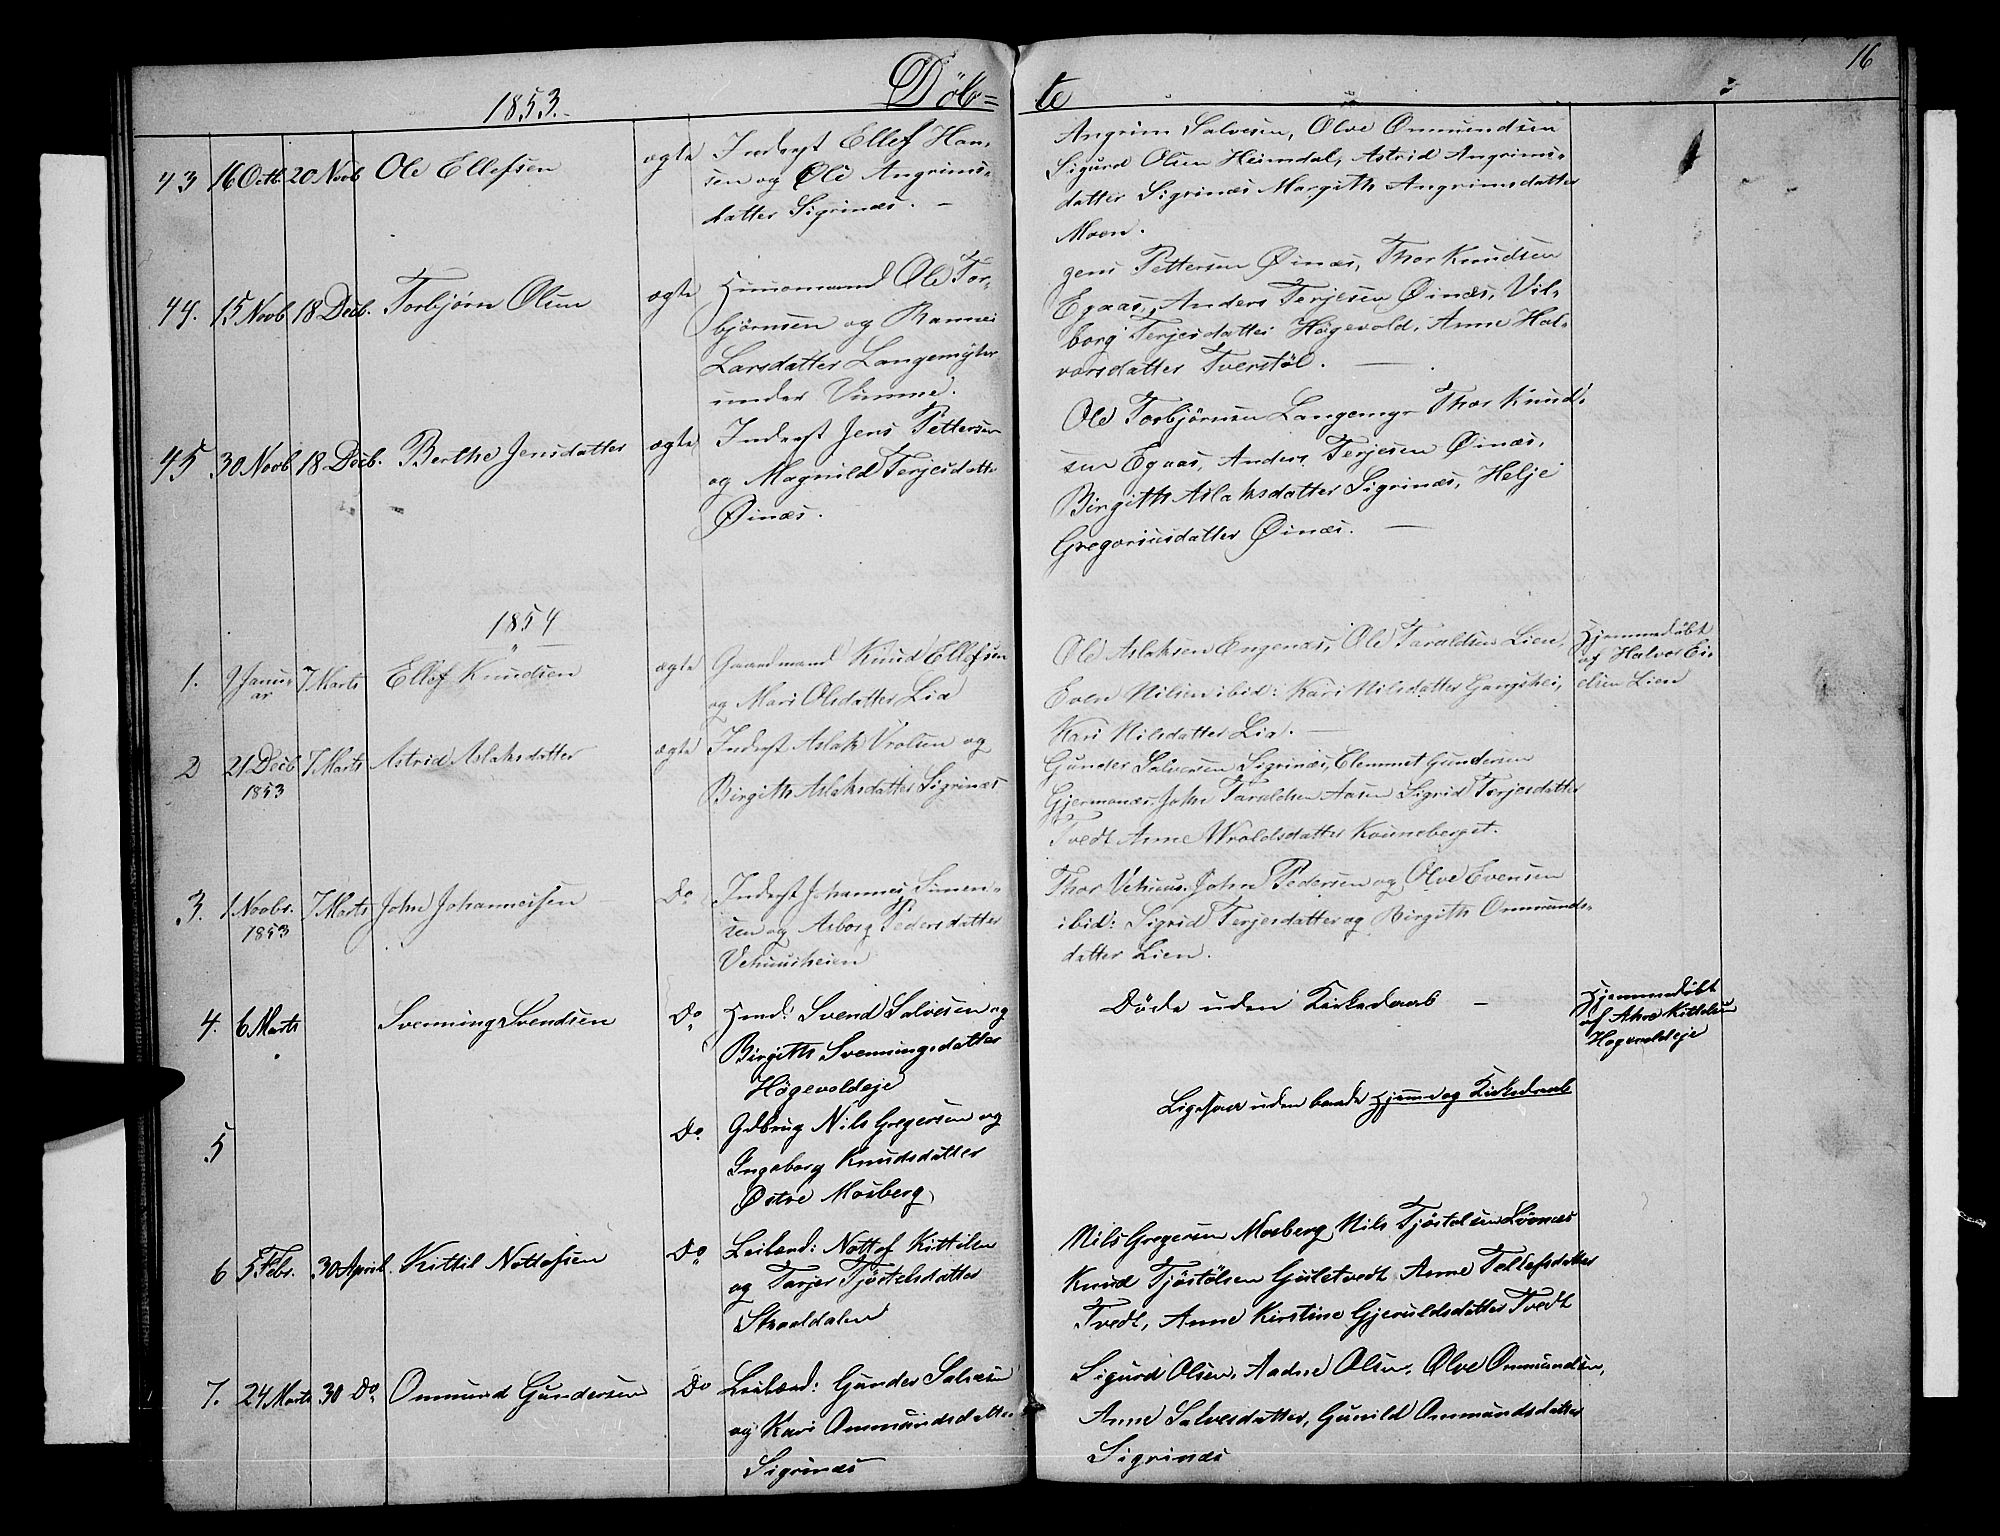 16
1853.
Döb=te
43 16 Octb 20 Novb Ole Ellefsen ægte Inderst Ellef Han-
sen og Ole Angrims-
datter Sigrinæs. —
Angrim Salvesen, Olve Onmundsen
Sigurd Olsen Heimdal, Astrid Angrims-
datter Sigrinæs Margith Angrimsdatter
Moen.
44. 15 Novb 18 Decb. Torbjørn Olsen ægte Huusmand Ole Tor-
bjørnsen og Rannei
Larsdatter Langemyr
under Vimme.
Jens Pettersen Øinæs, Thor Knudsen
Egaas, Anders Terjesen Øinæs, Vil-
borg Terjesdatter Högevold, Anne Hal-
vorsdatter Tverstöl. —
45 30 Novb 18 Decb. Berthe Jensdatter ægte Inderst Jens Pettersen
og Magnild Terjesdatter
Øinæs.
Ole Torbjörnsen Langemyr Thor Knud-
sen Egaas, Anders Terjesen Øinæs,
Birgith Aslaksdatter Sigrinæs, Helje
Gregoriusdatter Øinæs. —
1854
1. 9 Janu-
ar 7 Marts Ellef Knudsen ægte Gaardmand Knud Ellefsen
og Mari Olsdatter Lia
Ole Aslaksen Engenæs, Ole Taraldsen Lien,
Even Nilsen ibid: Kari Nilsdatter Gangshei,
Kari Nilsdatter Lia. —
Hjemmedöbt
af Halvor Ei-
elsen Lien
2 21 Decb
1853 7 Marts Astrid Aslaksdatter ægte Inderst Aslak Vrolsen og
Birgith Aslaksdatter Sigrinæs
Gunder Salvesen Sigrinæs, Clemmet Gundersen
Gjermonæs, John Taraldsen Aasen Sigrid Terjesdatter
Tvedt Anne Wroldsdatter Kouneberget.
3. 1 Novbr.
1853 7 Marts John Johannesen Do Inderst Johannes Simen-
sen og Asborg Pedersdatter
Vehuusheien
Thor Vehuus. John Pedersen og Olve Evensen
ibid: Sigrid Terjesdatter og Birgith Onmunds-
datter Lien.
4. 6 Marts Svenning Svendsen Do Hmd: Svend Salvesen og
Birgith Svenningsdatter
Högevoldeje
Döde uden Kirkedaab —
Hjemmedöbt
af Aline Kittelsen
Hogevoldeje
5 Do. Gdbrug Nils Gregersen og
Ingeborg Knudsdatter
Østre Mosberg
Ligesaa uden baade Hjeme og Kirkedaab
6 5 Febr. 30 April. Kittil Nottofsen Do Leilænd: Nottof Kittilsen
og Tarjer Tjöstelsdatter
Skaaldalen
Nils Gregersen Mosberg, Nils Tjöstelsen Lövnæs
Knud Tjöstölsen Gulstvedt Anne Tellefsdatter
Tvedt, Anne Kirstine Gjeruldsdatter Tvedt
7. 24 Marts 30 Do Onmund Gundersen Do Leilænd: Gunder Salvesen
og Kari Onmundsdatter
Sigrinæs
Sigurd Olsen, Aadne Olsen, Olve Onmundsen,
Anne Salvesdatter, Gunild Onmundsdatter
Sigrinæs